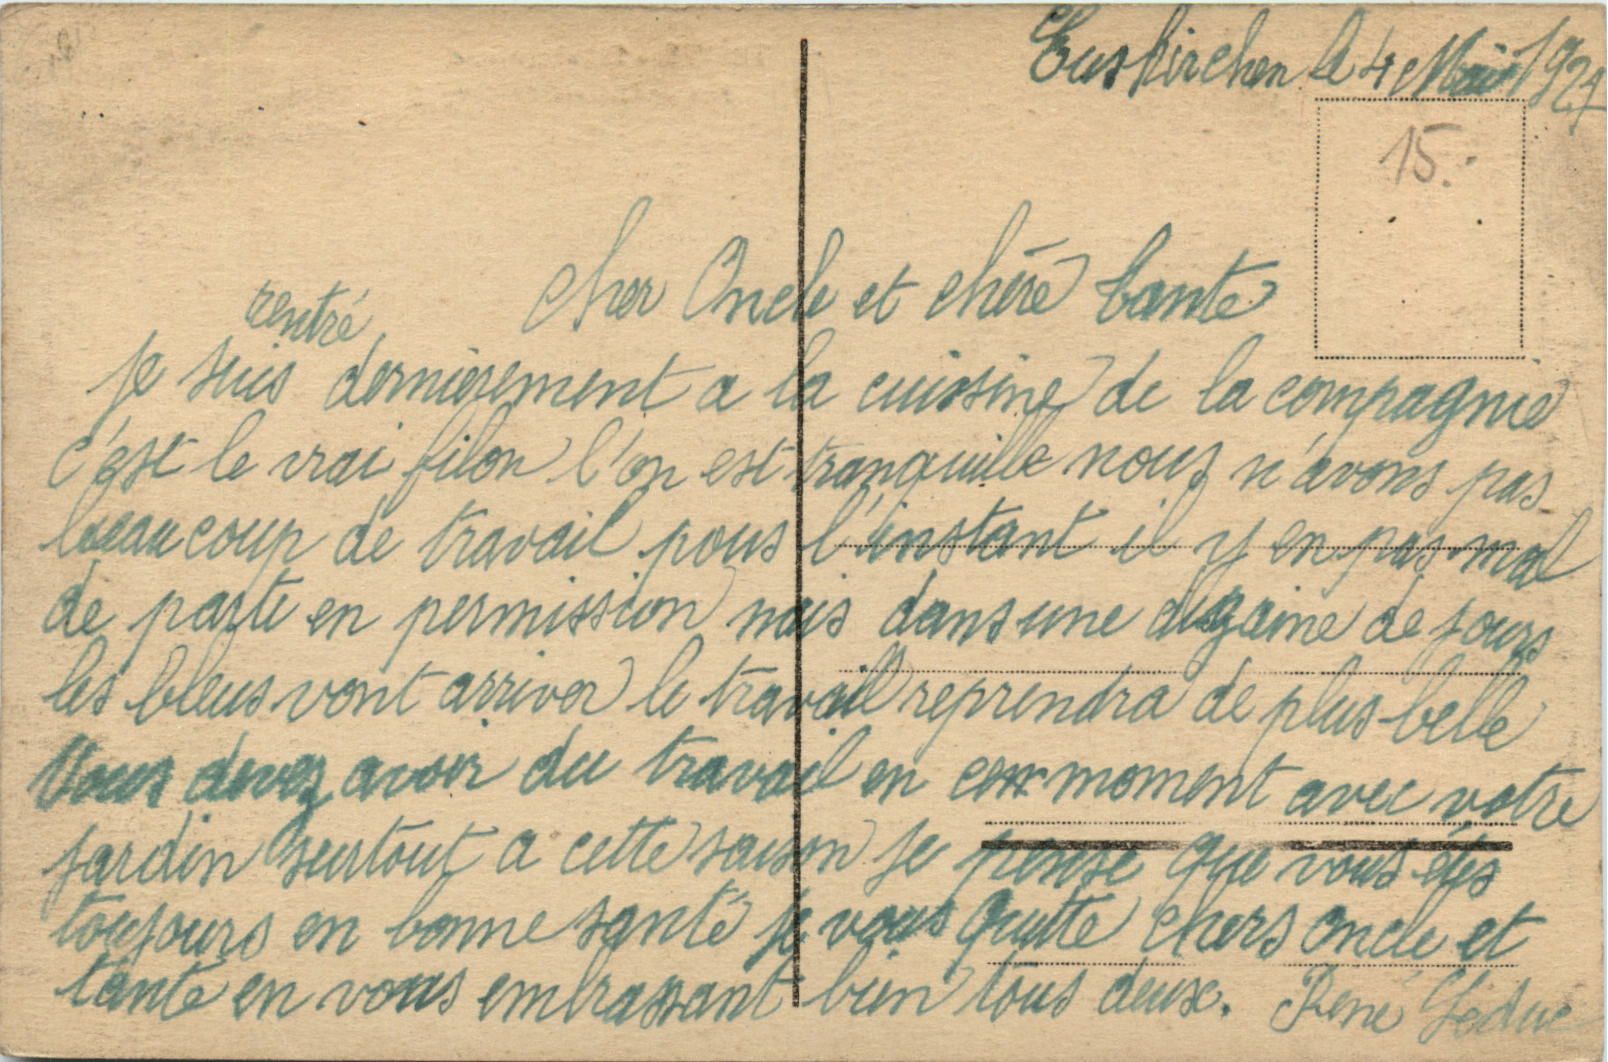 Euskirchen le 4 Mai 1927
15.
Cher Oncle et chère tante
rentré
je suis dernierement a la cuisine de la compagnie
c'est le vrai filon l'on est tranquille nous n'avons pas
beaucoup de travail pour l'instant il y en pas mal
de parti en permission mais dans une dizaine de jours
les bleus vont arriver le travail reprendra de plus belle
Vous devez avoir du travail en ce moment avec votre
jardin surtout a cette saison je pense que vous êtes
toujours en bonne santé je vous quitte chers oncle et
tante en vous embrassant bien tous deux. René Leduc